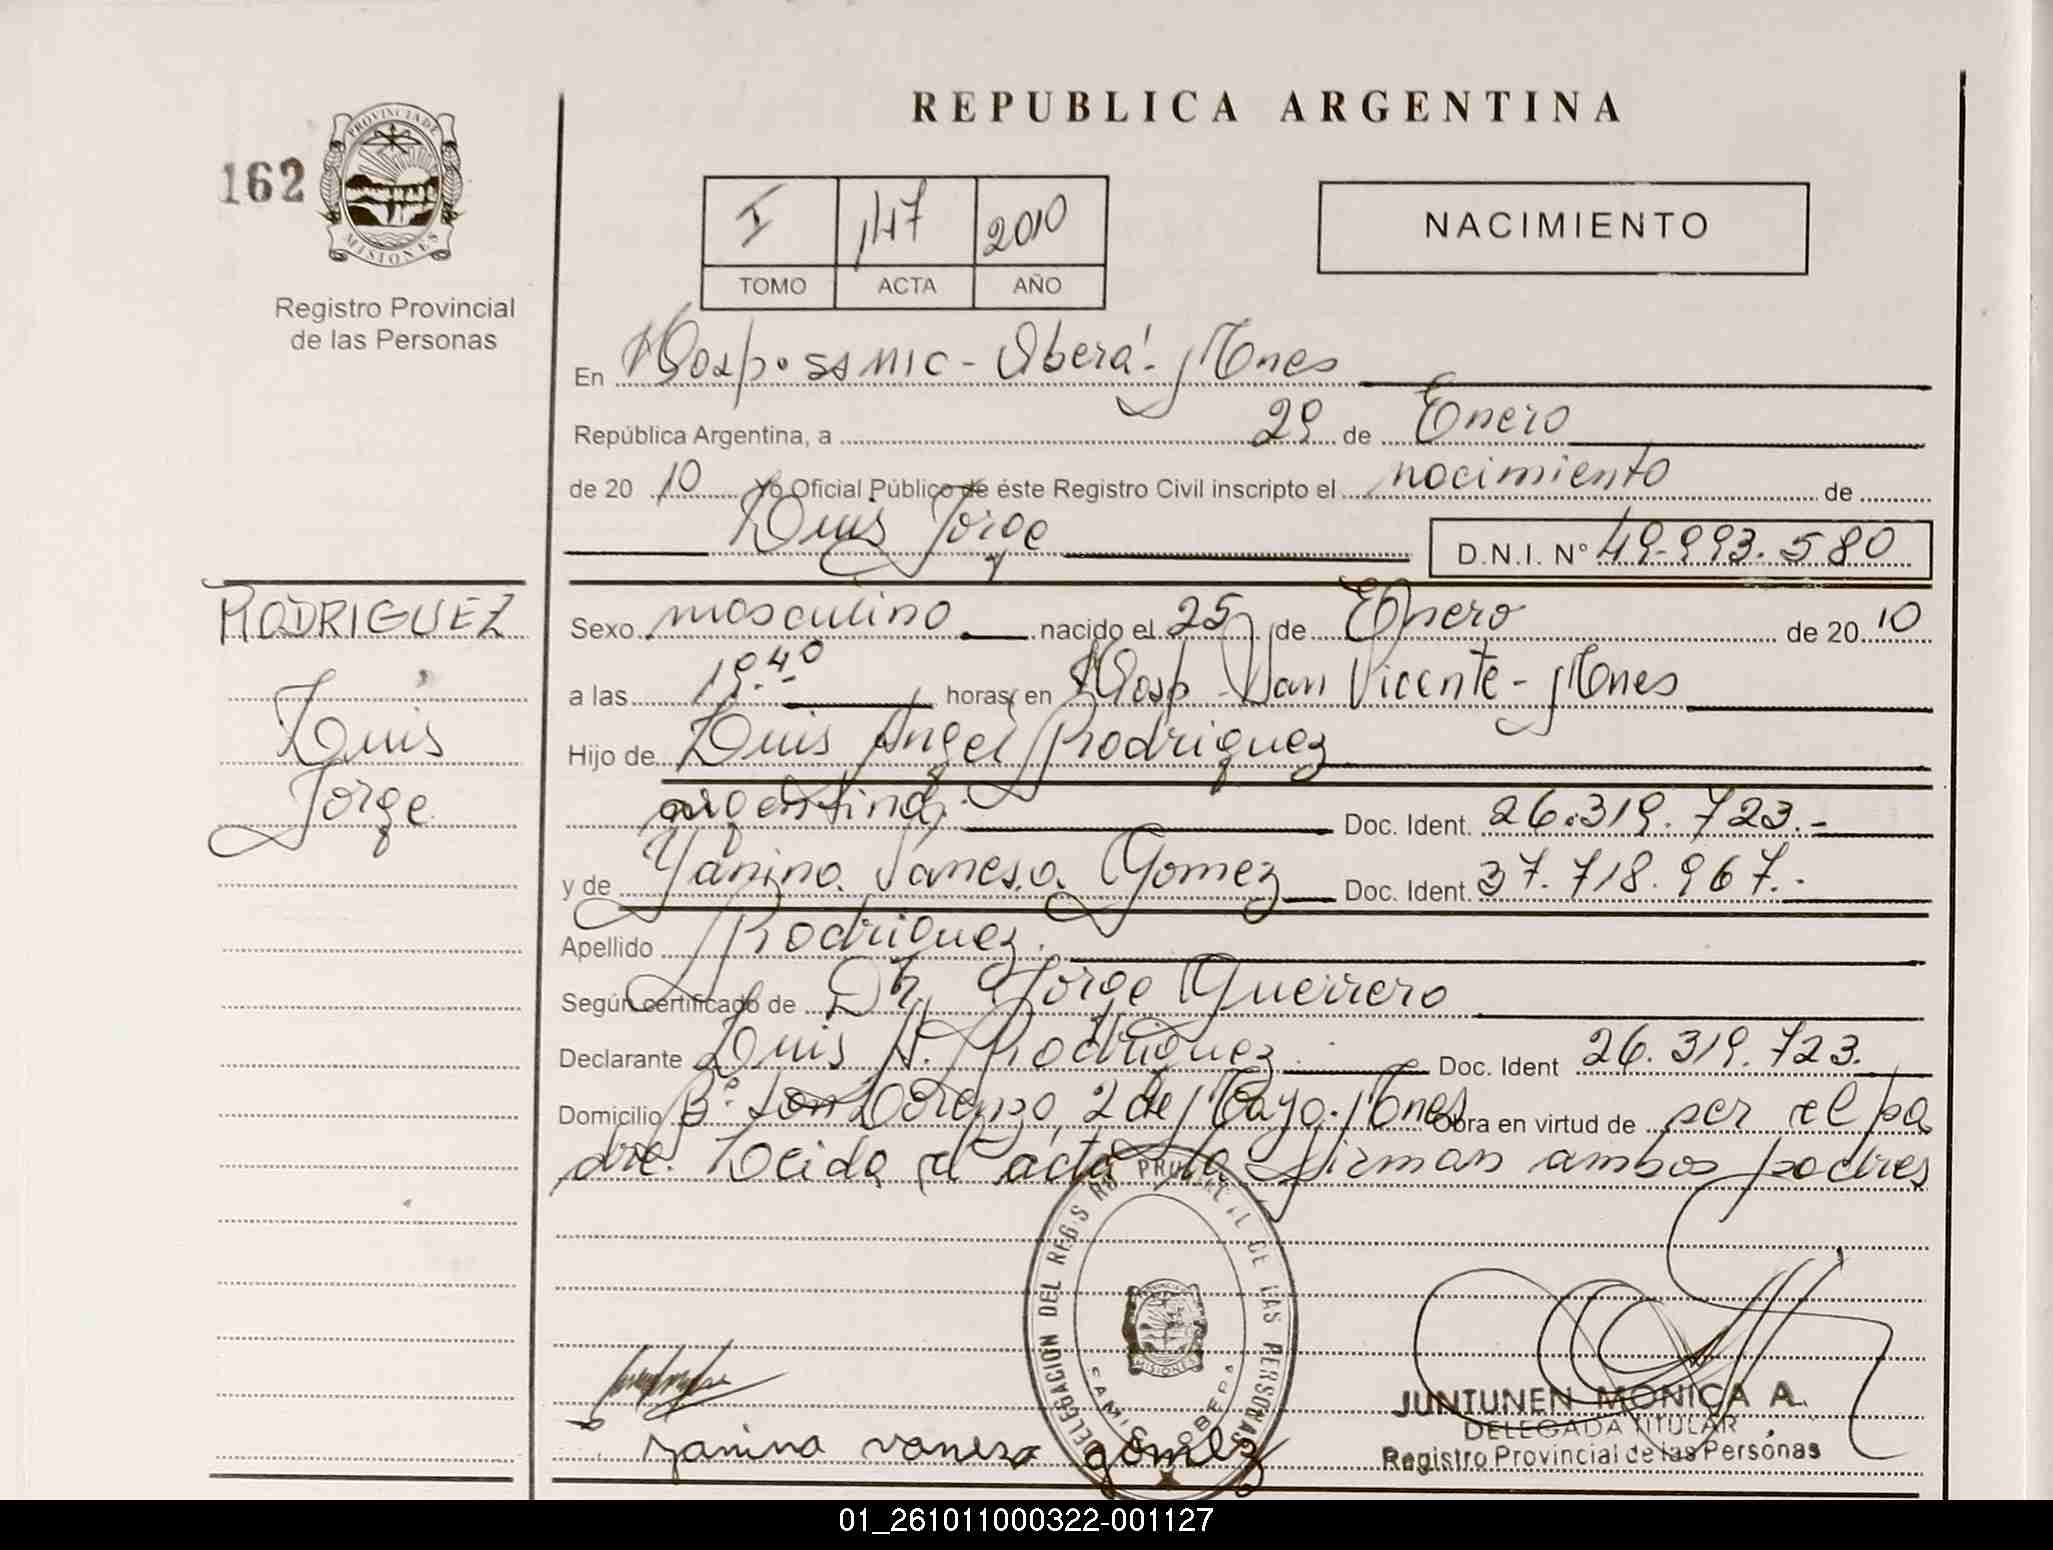 REPUBLICA ARGENTINA
162
PROVINCIA DE
MISIONES
Registro Provincial
de las Personas
I 147 2010
TOMO ACTA AÑO
NACIMIENTO
En Hosp. SAMIC - Oberá - Mnes
República Argentina, a 29 de Enero
de 20 10 Yo Oficial Público de éste Registro Civil inscripto el nacimiento de
Luis Jorge D.N.I. Nº 49.993.580
RODRIGUEZ
Luis
Jorge
Sexo masculino nacido el 25 de Enero de 20 10
a las 19.40 horas en Hosp. San Vicente - Mnes
Hijo de Luis Angel Rodriguez
argentina. Doc. Ident. 26.319.723.-
y de Yanina Vanesa Gomez Doc. Ident. 37.718.967.-
Apellido Rodriguez.
Según certificado de Dr. Jorge Guerrero
Declarante Luis A. Rodriguez Doc. Ident 26.319.723.
Domicilio Bº San Lorenzo, 2 de Mayo. Mnes Obra en virtud de ser el pa
dre. Leida el acta la firman ambos padres
DELEGACION DEL REGISTRO PROVINCIAL DE LAS PERSONAS
MISIONES
SAMIC OBERA
yanina vanesa gomez
JUNTUNEN MONICA A.
DELEGADA TITULAR
Registro Provincial de las Personas
01_261011000322-001127